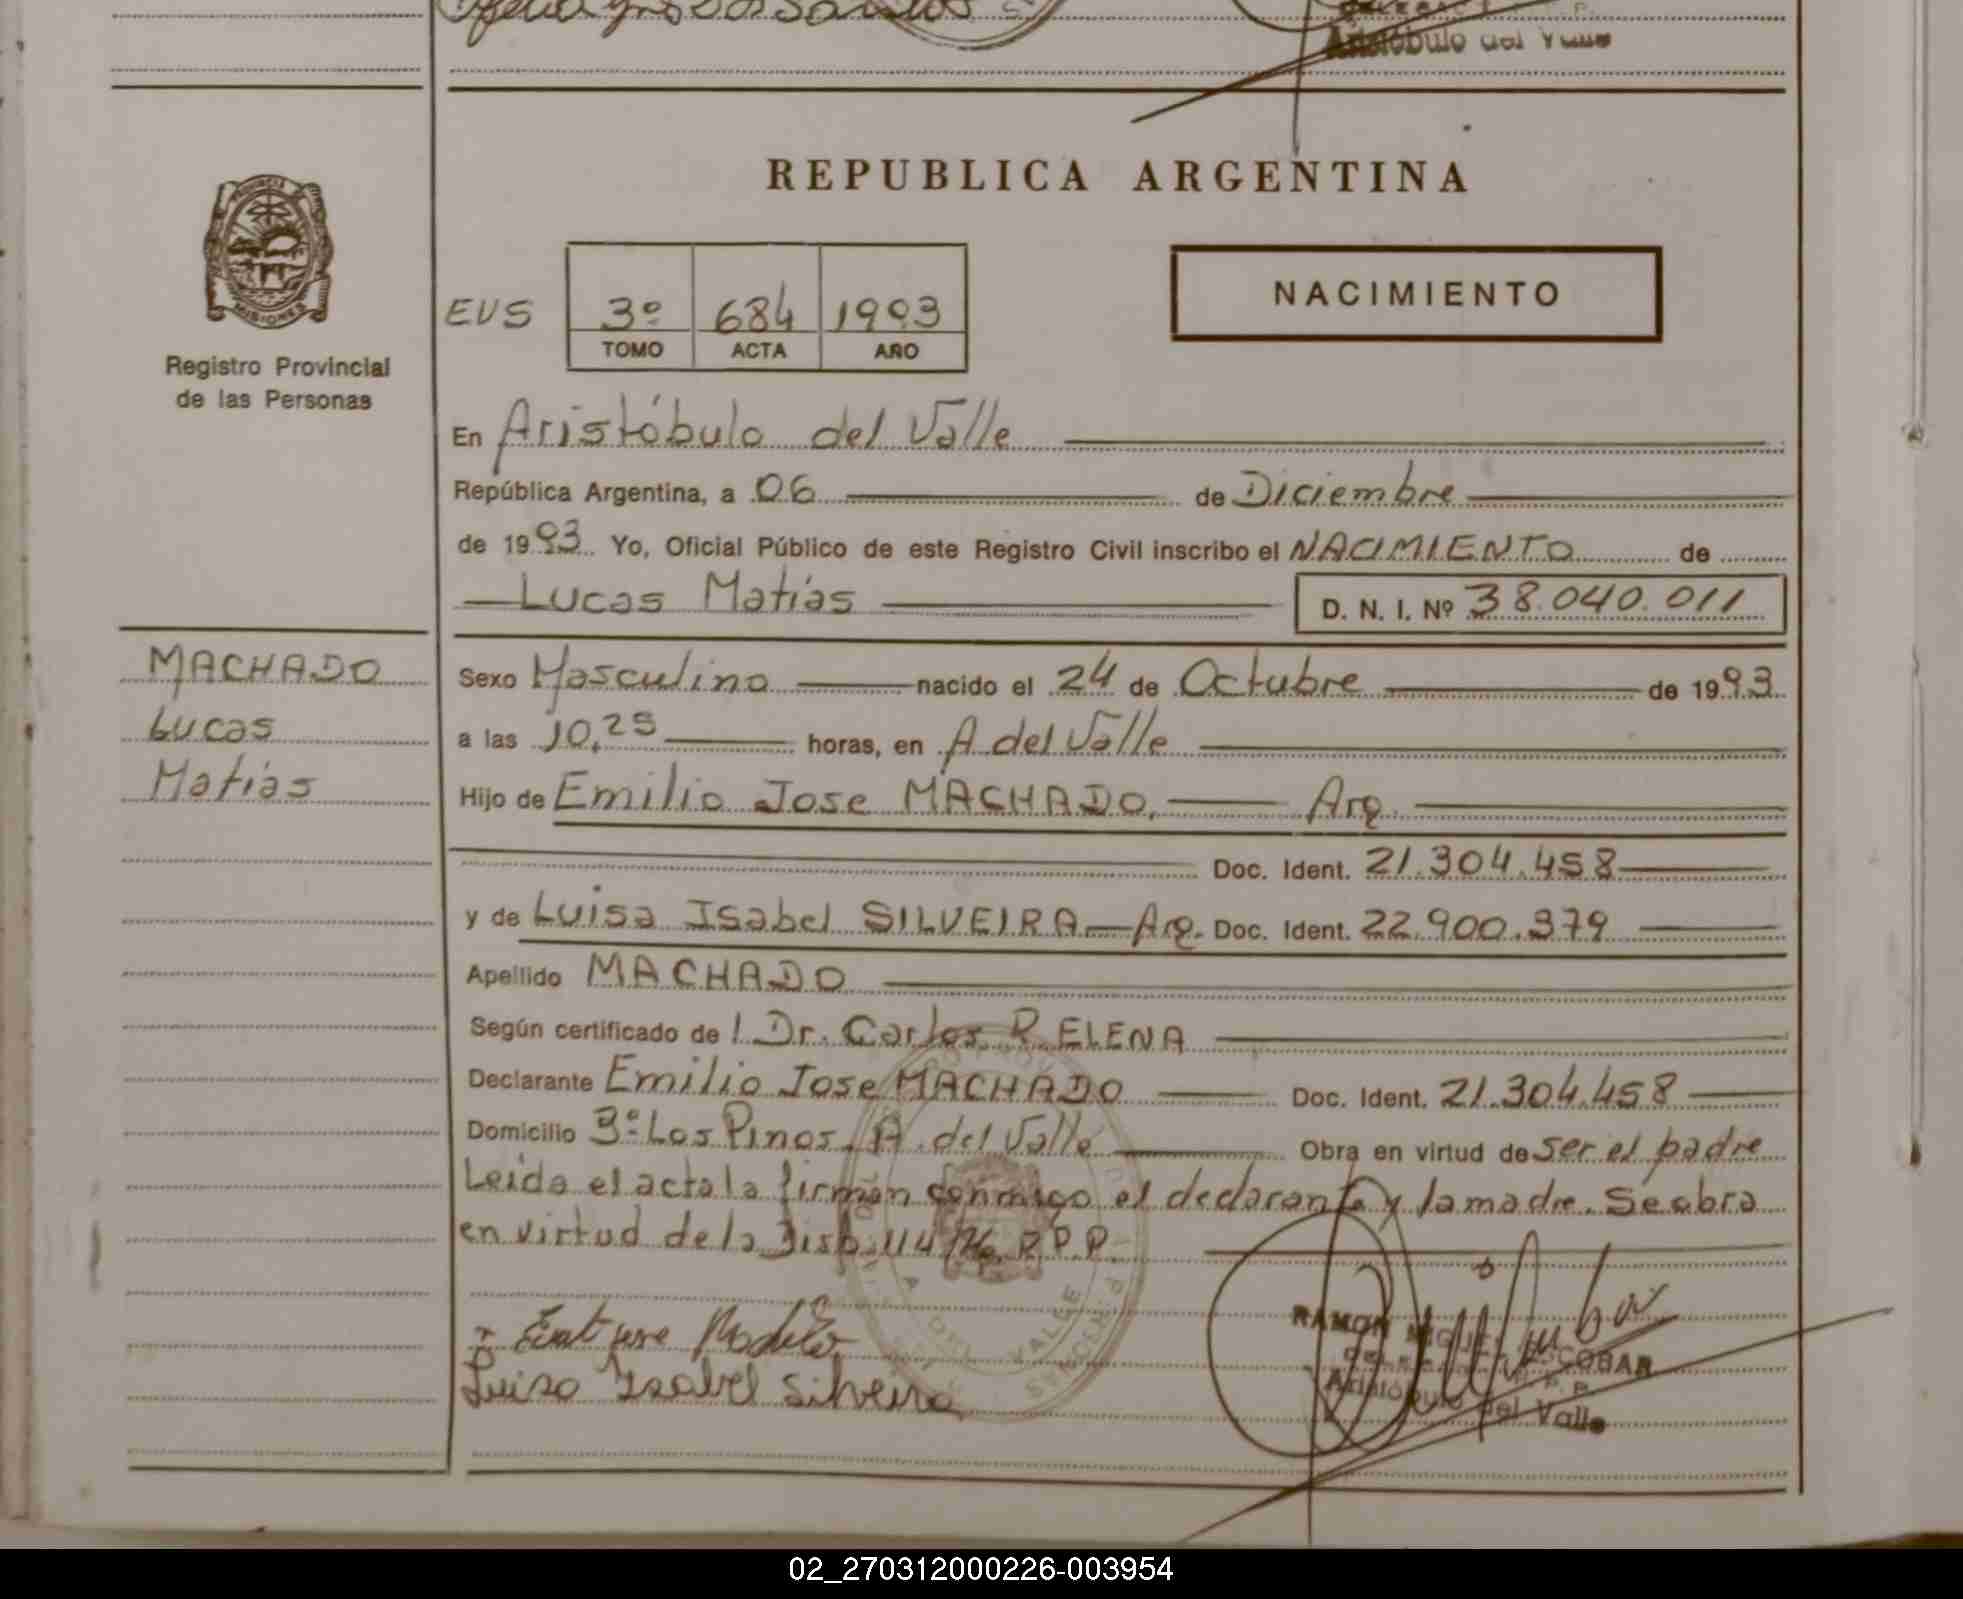 Aristóbulo del Valle
REPUBLICA ARGENTINA
MISIONES
Registro Provincial
de las Personas
EVS
3º 684 1993
TOMO ACTA AÑO
NACIMIENTO
En Aristóbulo del Valle
República Argentina, a 06 de Diciembre
de 1993 Yo, Oficial Público de este Registro Civil inscribo el NACIMIENTO de
Lucas Matías D. N. I. Nº 38.040.011
MACHADO
Lucas
Matías
Sexo Masculino nacido el 24 de Octubre de 1993
a las 10,25 horas, en A del Valle
Hijo de Emilio Jose MACHADO. Arg.
Doc. Ident. 21.304.458
y de Luisa Isabel SILVEIRA Arg. Doc. Ident. 22.900.379
Apellido MACHADO
Según certificado de l Dr. Carlos R ELENA
Declarante Emilio Jose MACHADO Doc. Ident. 21.304.458
Domicilio Bº Los Pinos. A. del Valle Obra en virtud de ser el padre
Leida el acta la firman conmigo el declarante y la madre. Se obra
en virtud de la Disp. 114/76 R.P.P.
Luisa Isabel Silveira
RAMON MIGUEL ESCOBAR
Aristóbulo del Valle
02_270312000226-003954